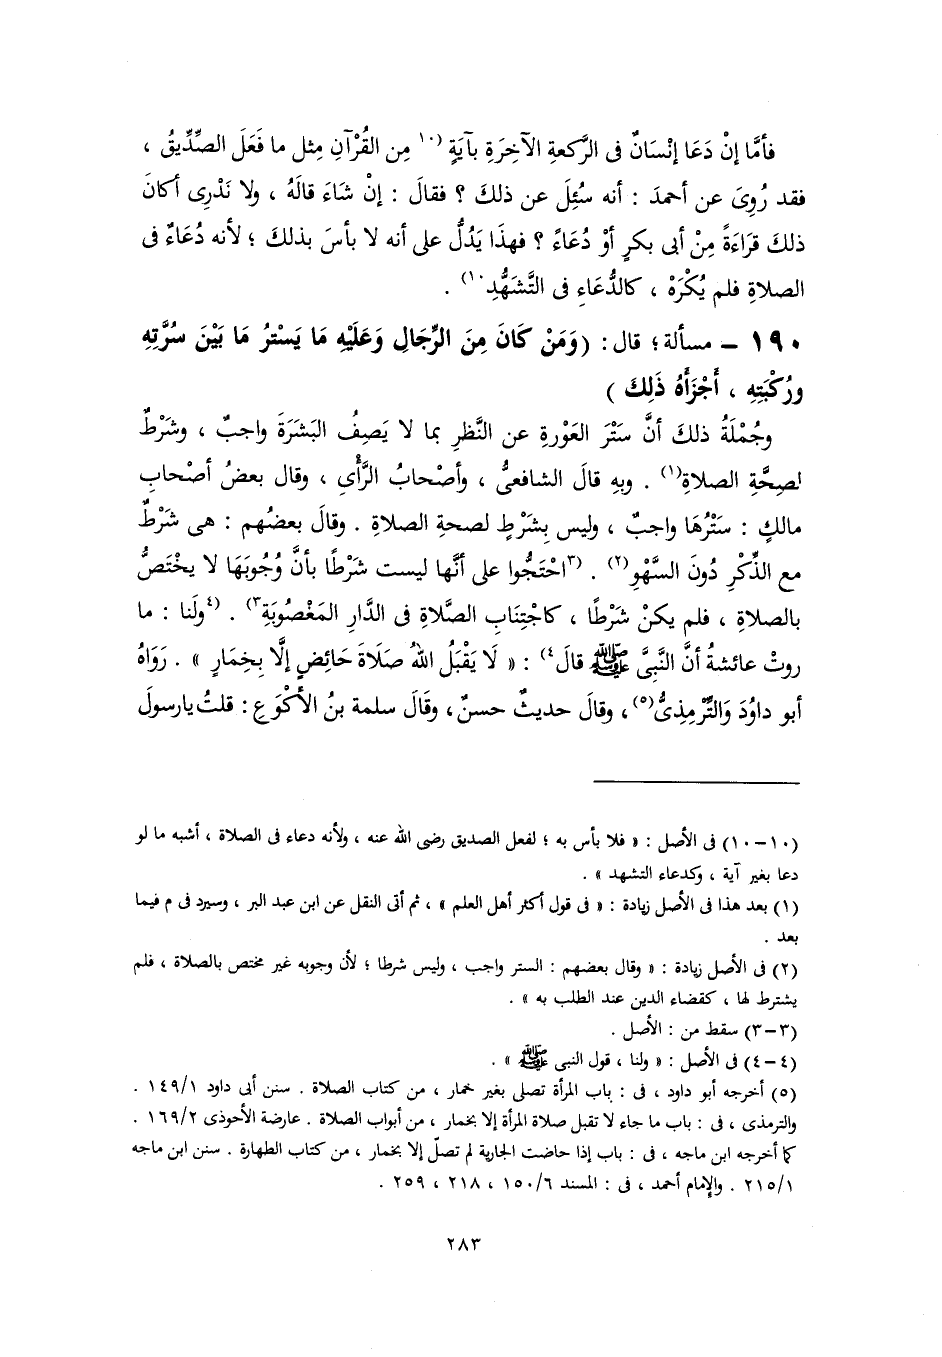 فأمَّا إنْ دَعَا إنْسَانٌ فى الرَّكعةِ الآخِرَةِ بآيَةٍ (١٠ مِن القُرْآنِ مِثل ما فَعَلَ الصِّدِّيقُ ،
فقد رُوِىَ عن أحمدَ : أنه سُئِلَ عن ذلكَ ؟ فقالَ : إنْ شَاءَ قالَهُ ، ولا نَدْرِى أكانَ
ذلكَ قِرَاءَةً مِنْ أبى بكرٍ أوْ دُعَاءً ؟ فهذَا يَدُلُّ على أنه لا بأسَ بذلكَ ؛ لأنه دُعَاءٌ فى
الصلاةِ فلم يُكْرَهْ ، كالدُّعَاءِ فى التَّشَهُّدِ ١٠) .
١٩٠ - مسألة ؛ قال : ( وَمَنْ كَانَ مِنَ الرِّجَالِ وَعَلَيْهِ مَا يَسْترُ مَا بَيْنَ سُرَّتِهِ
ورُكْبَتِهِ ، أَجْزَأَهُ ذَلِكَ )
وجُمْلَةُ ذلكَ أنَّ سَتْرَ العَوْرةِ عن النَّظرِ بما لا يَصِفُ البَشَرَةَ واجبٌ ، وشَرْطٌ
لصِحَّةِ الصلاةِ(١) . وبهِ قالَ الشافعىُّ ، وأصْحابُ الرَّأْىِ ، وقال بعضُ أصْحابِ
مالكٍ : سَتْرُهَا واجبٌ ، وليس بِشَرْطٍ لصحةِ الصلاةِ . وقالَ بعضُهم : هى شَرْطٌ
مع الذِّكْرِ دُونَ السَّهْوِ(٢) . (٣احْتَجُّوا على أنَّها ليست شَرْطًا بأنَّ وُجُوبَهَا لا يخْتَصُّ
بالصلاةِ ، فلم يكنْ شَرْطًا ، كاجْتِنَابِ الصَّلاةِ فى الدَّارِ المَغْصُوبَةِ٣) . (٤ولَنا : ما
روتْ عائشةُ أنَّ النَّبِىَّ ﷺ قالَ٤) : « لَا يَقْبَلُ اللهُ صَلَاةَ حَائِضٍ إلَّا بِخِمَارٍ » . رَوَاهُ
أبو داوُدَ وَالتِّرْمِذِىُّ(٥)، وقالَ حديثٌ حسنٌ، وقَالَ سلمة بنُ الأكْوَعِ : قلتُ يارسولَ
(١٠-١٠) فى الأصل : « فلا بأس به ؛ لفعل الصديق رضى الله عنه ، ولأنه دعاء فى الصلاة ، أشبه ما لو
دعا بغير آية ، وكدعاء التشهد » .
(١) بعد هذا فى الأصل زيادة : « فى قول أكثر أهل العلم » ، ثم أتى النقل عن ابن عبد البر ، وسيرد فى م فيما
بعد .
(٢) فى الأصل زيادة : « وقال بعضهم : الستر واجب ، وليس شرطا ؛ لأن وجوبه غير مختص بالصلاة ، فلم
يشترط لها ، كقضاء الدين عند الطلب به » .
(٣-٣) سقط من : الأصل .
(٤-٤) فى الأصل : « ولنا ، قول النبى ﷺ » .
(٥) أخرجه أبو داود ، فى : باب المرأة تصلى بغير خمار ، من كتاب الصلاة . سنن أبى داود ١٤٩/١ .
والترمذى ، فى : باب ما جاء لا تقبل صلاة المرأة إلا بخمار ، من أبواب الصلاة . عارضة الأحوذى ١٦٩/٢ .
كما أخرجه ابن ماجه ، فى : باب إذا حاضت الجارية لم تصلّ إلا بخمار ، من كتاب الطهارة . سنن ابن ماجه
٢١٥/١ . والإمام أحمد ، فى : المسند ١٥٠/٦ ، ٢١٨ ، ٢٥٩ .
٢٨٣